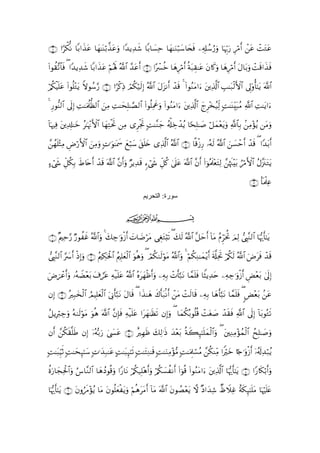 عَتَتْ عَنْ أَمْرِ رَبِّهَا وَرُسُلِهِۦ فَحَاسَبْنَٰهَا حِسَابًا شَدِيدًا وَعَذَّبْنَٰهَا عَذَابًا نُّكْرًا ۝
فَذَاقَتْ وَبَالَ أَمْرِهَا وَكَانَ عَٰقِبَةُ أَمْرِهَا خُسْرًا ۝ أَعَدَّ ٱللَّهُ لَهُمْ عَذَابًا شَدِيدًا ۖ فَٱتَّقُوا۟
ٱللَّهَ يَٰٓأُو۟لِى ٱلْأَلْبَٰبِ ٱلَّذِينَ ءَامَنُوا۟ ۚ قَدْ أَنزَلَ ٱللَّهُ إِلَيْكُمْ ذِكْرًا ۝ رَّسُولًا يَتْلُوا۟ عَلَيْكُمْ
ءَايَٰتِ ٱللَّهِ مُبَيِّنَٰتٍ لِّيُخْرِجَ ٱلَّذِينَ ءَامَنُوا۟ وَعَمِلُوا۟ ٱلصَّٰلِحَٰتِ مِنَ ٱلظُّلُمَٰتِ إِلَى ٱلنُّورِ ۚ
وَمَن يُؤْمِنۢ بِٱللَّهِ وَيَعْمَلْ صَٰلِحًا يُدْخِلْهُ جَنَّٰتٍ تَجْرِى مِن تَحْتِهَا ٱلْأَنْهَٰرُ خَٰلِدِينَ فِيهَآ
أَبَدًا ۖ قَدْ أَحْسَنَ ٱللَّهُ لَهُۥ رِزْقًا ۝ ٱللَّهُ ٱلَّذِى خَلَقَ سَبْعَ سَمَٰوَٰتٍ وَمِنَ ٱلْأَرْضِ مِثْلَهُنَّ
يَتَنَزَّلُ ٱلْأَمْرُ بَيْنَهُنَّ لِتَعْلَمُوٓا۟ أَنَّ ٱللَّهَ عَلَىٰ كُلِّ شَىْءٍ قَدِيرٌ وَأَنَّ ٱللَّهَ قَدْ أَحَاطَ بِكُلِّ شَىْءٍ
عِلْمًۢا ۝
سورة: التحريم
بِسْمِ ٱللَّهِ ٱلرَّحْمَٰنِ ٱلرَّحِيمِ
يَٰٓأَيُّهَا ٱلنَّبِىُّ لِمَ تُحَرِّمُ مَآ أَحَلَّ ٱللَّهُ لَكَ ۖ تَبْتَغِى مَرْضَاتَ أَزْوَٰجِكَ ۚ وَٱللَّهُ غَفُورٌ رَّحِيمٌ ۝
قَدْ فَرَضَ ٱللَّهُ لَكُمْ تَحِلَّةَ أَيْمَٰنِكُمْ ۚ وَٱللَّهُ مَوْلَىٰكُمْ ۖ وَهُوَ ٱلْعَلِيمُ ٱلْحَكِيمُ ۝ وَإِذْ أَسَرَّ ٱلنَّبِىُّ
إِلَىٰ بَعْضِ أَزْوَٰجِهِۦ حَدِيثًا فَلَمَّا نَبَّأَتْ بِهِۦ وَأَظْهَرَهُ ٱللَّهُ عَلَيْهِ عَرَّفَ بَعْضَهُۥ وَأَعْرَضَ
عَنۢ بَعْضٍ ۖ فَلَمَّا نَبَّأَهَا بِهِۦ قَالَتْ مَنْ أَنۢبَأَكَ هَٰذَا ۖ قَالَ نَبَّأَنِىَ ٱلْعَلِيمُ ٱلْخَبِيرُ ۝ إِن
تَتُوبَآ إِلَى ٱللَّهِ فَقَدْ صَغَتْ قُلُوبُكُمَا ۖ وَإِن تَظَٰهَرَا عَلَيْهِ فَإِنَّ ٱللَّهَ هُوَ مَوْلَىٰهُ وَجِبْرِيلُ
وَصَٰلِحُ ٱلْمُؤْمِنِينَ ۖ وَٱلْمَلَٰٓئِكَةُ بَعْدَ ذَٰلِكَ ظَهِيرٌ ۝ عَسَىٰ رَبُّهُۥٓ إِن طَلَّقَكُنَّ أَن
يُبْدِلَهُۥٓ أَزْوَٰجًا خَيْرًا مِّنكُنَّ مُسْلِمَٰتٍ مُّؤْمِنَٰتٍ قَٰنِتَٰتٍ تَٰٓئِبَٰتٍ عَٰبِدَٰتٍ سَٰٓئِحَٰتٍ ثَيِّبَٰتٍ
وَأَبْكَارًا ۝ يَٰٓأَيُّهَا ٱلَّذِينَ ءَامَنُوا۟ قُوٓا۟ أَنفُسَكُمْ وَأَهْلِيكُمْ نَارًا وَقُودُهَا ٱلنَّاسُ وَٱلْحِجَارَةُ
عَلَيْهَا مَلَٰٓئِكَةٌ غِلَاظٌ شِدَادٌ لَّا يَعْصُونَ ٱللَّهَ مَآ أَمَرَهُمْ وَيَفْعَلُونَ مَا يُؤْمَرُونَ ۝ يَٰٓأَيُّهَا